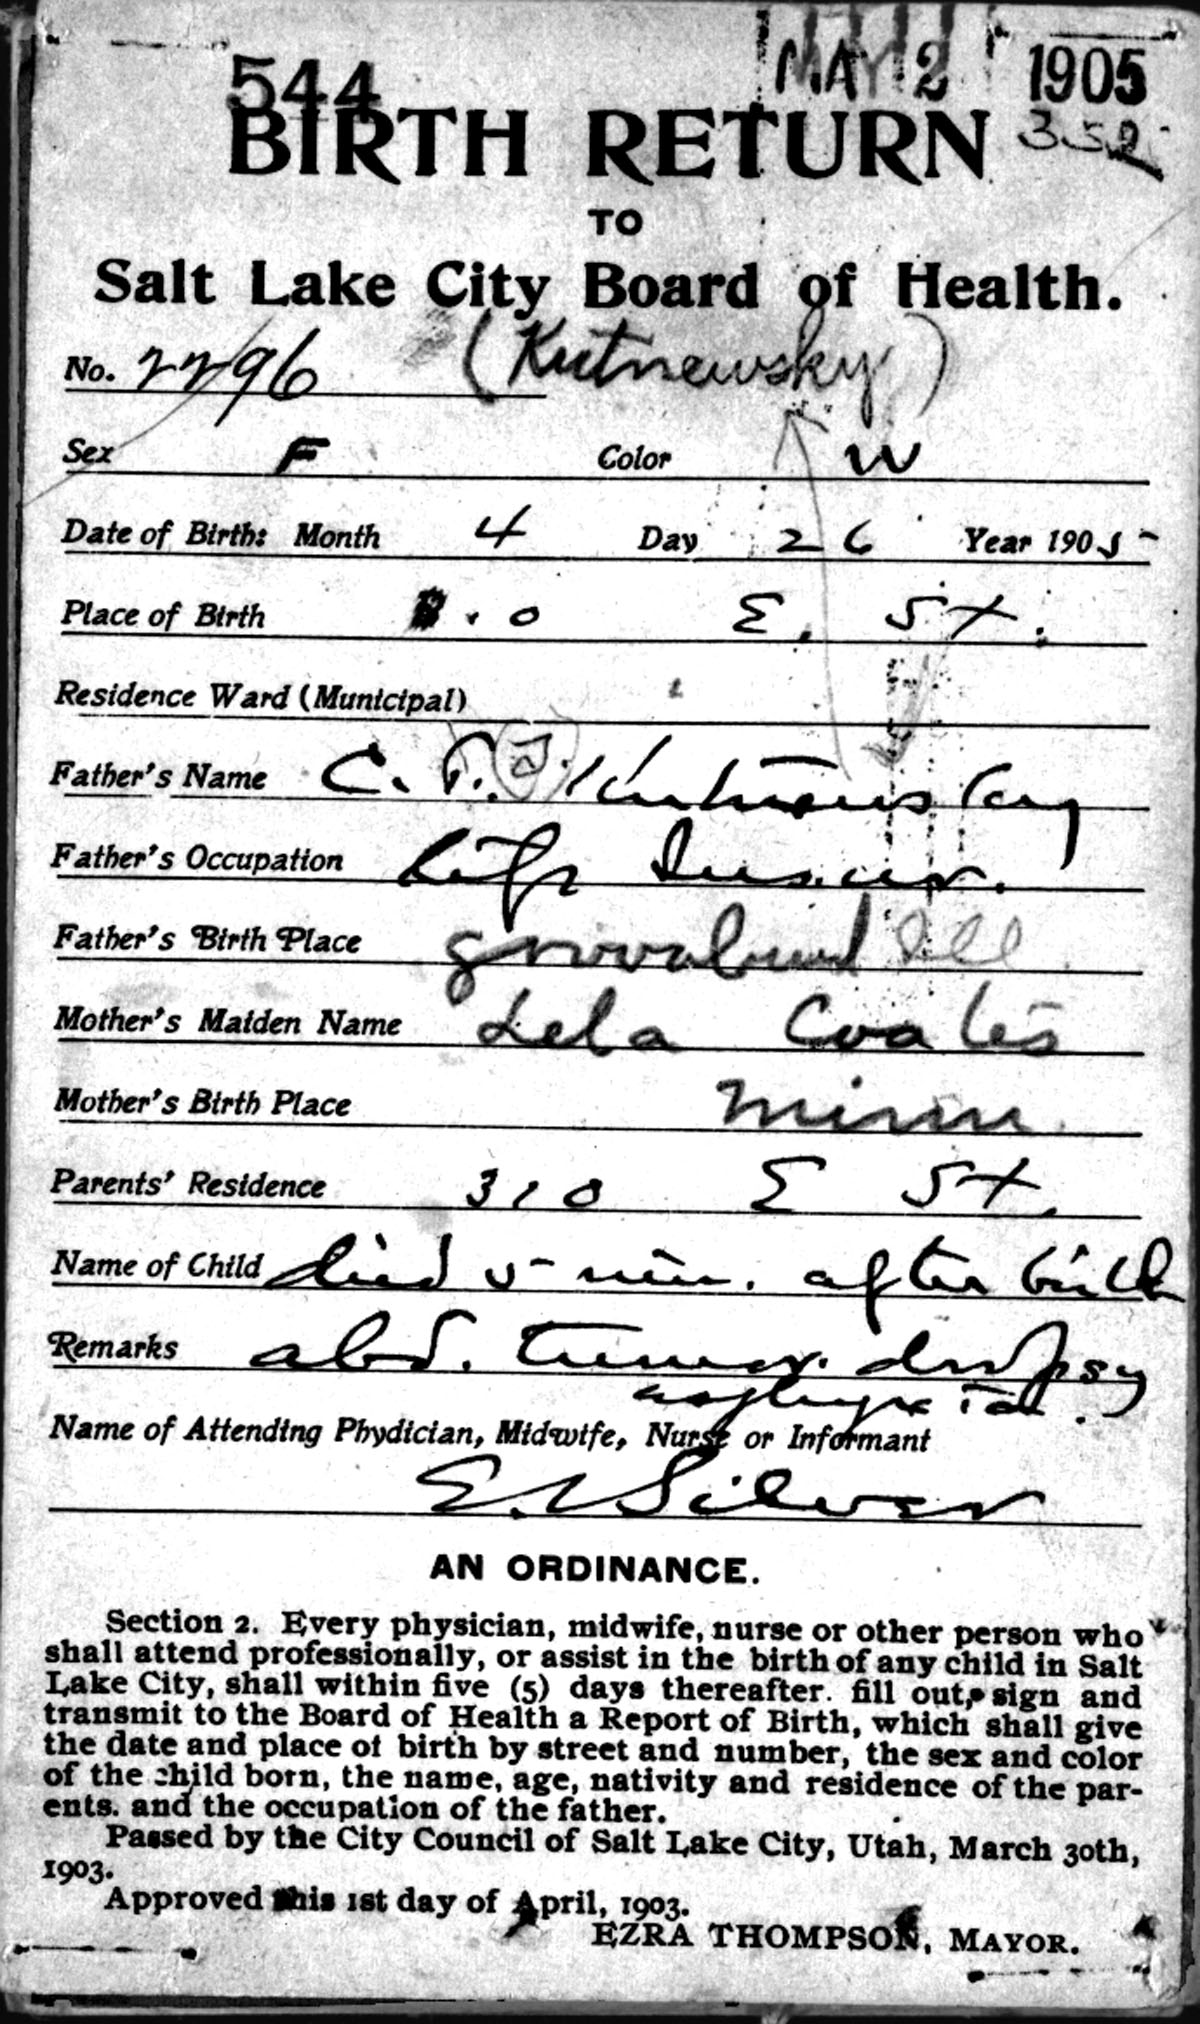 544
MAY 2 1905
BIRTH RETURN
352
TO
Salt Lake City Board of Health.
No. 2296 (Kutnewsky)
Sex F Color W
Date of Birth: Month 4 Day 26 Year 1905
Place of Birth 310 E. St.
Residence Ward (Municipal)
Father's Name C. F. Kutnewsky
Father's Occupation Life Insur.
Father's Birth Place Groveland Ill
Mother's Maiden Name Lela Coates
Mother's Birth Place Minn.
Parents' Residence 310 E St.
Name of Child died 5 min. after birth
Remarks abd. tumor. dropsy
asphyxiated.
Name of Attending Phydician, Midwife, Nurse or Informant
Silver
AN ORDINANCE.
Section 2. Every physician, midwife, nurse or other person who
shall attend professionally, or assist in the birth of any child in Salt
Lake City, shall within five (5) days thereafter. fill out, sign and
transmit to the Board of Health a Report of Birth, which shall give
the date and place of birth by street and number, the sex and color
of the child born, the name, age, nativity and residence of the par-
ents. and the occupation of the father.
Passed by the City Council of Salt Lake City, Utah, March 30th,
1903.
Approved this 1st day of April, 1903.
EZRA THOMPSON, MAYOR.